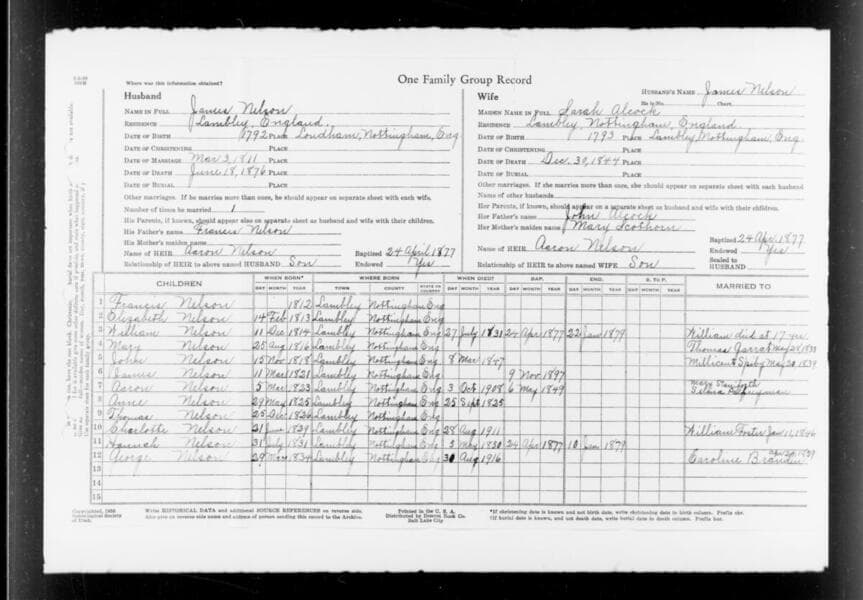 One Family Group Record
Where was this information obtained?
HUSBAND'S NAME James Nelson
Husband
Wife
NAME IN FULL James Nelson
MAIDEN NAME IN FULL Sarah Alcock
RESIDENCE Lambley, England
RESIDENCE Lambley, Nottingham, England
DATE OF BIRTH 1792 PLACE Loudham, Nottingham, Eng
DATE OF BIRTH 1793 PLACE Lambley, Nottingham, Eng.
DATE OF CHRISTENING PLACE
DATE OF CHRISTENING PLACE
DATE OF MARRIAGE Mar 3, 1811 PLACE
DATE OF DEATH Dec. 30, 1844 PLACE
DATE OF DEATH June 18, 1876 PLACE
DATE OF BURIAL PLACE
DATE OF BURIAL PLACE
Other marriages. If she married more than once, she should appear on separate sheet with each husband
Other marriages. If he married more than once, he should appear on separate sheet with each wife.
Name of other husbands
Number of times he married 1
Her Parents, if known, should appear on a separate sheet as husband and wife with their children.
His Parents, if known, should appear also on separate sheet as husband and wife with their children.
Her Father's name John Alcock
His Father's name Francis Nelson
Her Mother's maiden name Mary Scothorn
His Mother's maiden name
Name of HEIR Aaron Nelson Baptized 24 April 1877
Name of HEIR Aaron Nelson Baptized 24 Apr. 1877
Relationship of HEIR to above named HUSBAND Son Endowed Yes
Relationship of HEIR to above named WIFE Son Endowed Yes
Sealed to HUSBAND
CHILDREN WHEN BORN* WHERE BORN WHEN DIED† BAP. END. S. TO P. MARRIED TO
DAY MONTH YEAR TOWN COUNTY STATE OR COUNTRY DAY MONTH YEAR DAY MONTH YEAR DAY MONTH YEAR DAY MONTH YEAR
1 Francis Nelson 1812 Lambley Nottingham Eng
2 Elizabeth Nelson 14 Feb 1813 Lambley Nottingham Eng
3 William Nelson 11 Dec 1814 Lambley Nottingham Eng 27 July 1831 24 Apr 1877 22 Jan 1879 William died at 17 yrs
4 Mary Nelson 25 Aug 1816 Lambley Nottingham Eng Thomas Garrat May 28 1838
5 John Nelson 15 Nov 1818 Lambley Nottingham Eng 8 Mar 1847 Millicent May 20 1839
6 James Nelson 11 Mar 1821 Lambley Nottingham Eng 9 Nov 1897
7 Aaron Nelson 5 Mar 1823 Lambley Nottingham Eng 3 Oct 1908 6 May 1849 Mary
8 Anne Nelson 29 May 1825 Lambley Nottingham Eng 25 Sept 1825
9 Thomas Nelson 25 Dec 1826 Lambley Nottingham Eng
10 Charlotte Nelson 21 June 1829 Lambley Nottingham Eng 28 Aug 1911 William Foster Jan 11, 1846
11 Hannah Nelson 31 July 1831 Lambley Nottingham Eng 3 May 1830 24 Apr 1877 10 Jan 1879
12 George Nelson 29 Mar 1834 Lambley Nottingham Eng 30 Aug 1916 Caroline
13
14
15
Copyrighted, 1936
Genealogical Society
of Utah.
Write HISTORICAL DATA and additional SOURCE REFERENCES on reverse side.
Also give on reverse side name and address of person sending this record to the Archive.
Printed in the U. S. A.
Distributed by Deseret Book Co.
Salt Lake City
*If christening date is known and not birth date, write christening date in birth column. Prefix chr.
†If burial date is known, and not death date, write burial date in death column. Prefix bur.